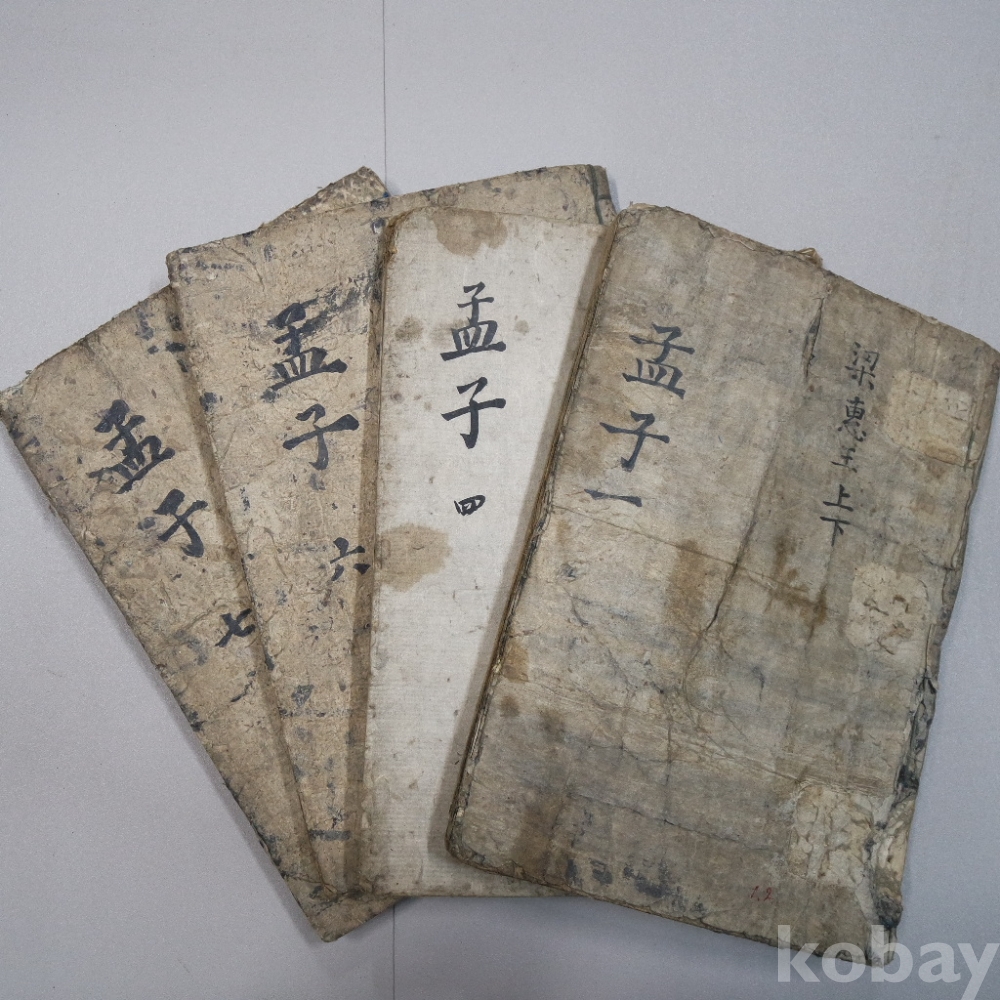 孟子 七
孟子 六
孟子 四
孟子 一
梁惠王 上下
1,2
kobay